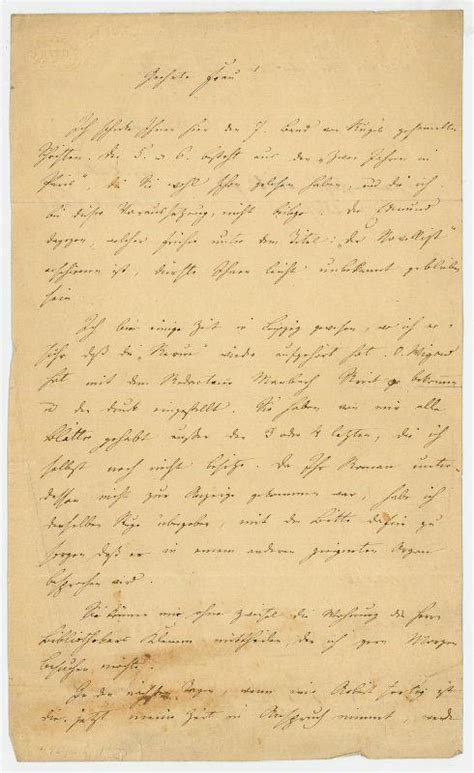 Geehrte Frau!
Ich schicke Ihnen hier den 7. Band von Ruge's gesammelten
Schriften. Der 5. u 6. besteht aus den "Zwei Jahren in
Paris", die Sie wohl schon gelesen haben, und die ich
bei dieser Voraussetzung nicht beilege. Der Edmund
dagegen, welcher früher unter dem Titel: "Der Novellist"
erschienen ist, dürfte Ihnen leicht unbekannt geblieben
sein.
Ich bin einige Zeit in Leipzig gewesen, wo ich er-
fuhr daß die "Revue" wieder aufgehört hat. O. Wigand
hat mit dem Redacteur Marbach Streit bekommen
u den Druck eingestellt. Sie haben von mir alle
Blätter gehabt außer den 3 oder 4 letzten, die ich
selbst noch nicht besitze. Da Ihr Roman unter-
dessen nicht zur Anzeige gekommen war, habe ich
denselben übergeben, mit der Bitte dafür zu
sorgen daß er in einem anderen geeigneten Organ
besprochen wird.
Sie können mir ohne Zweifel die Wohnung des Herrn
Bibliothekars Klemm mittheilen, den ich gern Morgen
besuchen möchte.
In den nächsten Tagen, wenn eine Arbeit fertig ist
die jetzt meine Zeit in Anspruch nimmt, werde